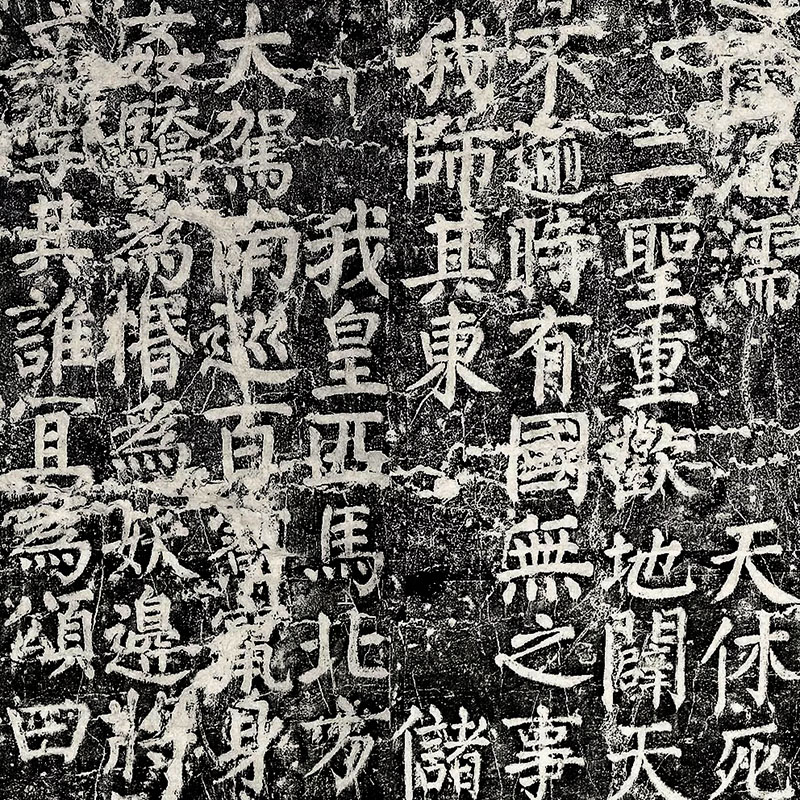 涵濡 天休死
二聖重歡地闢天
不逾時有國無之事
我師其東 儲
我皇匹馬北方
大駕南巡百寮竄身
姦驕為惛為妖邊將
文學其誰宜為頌曰